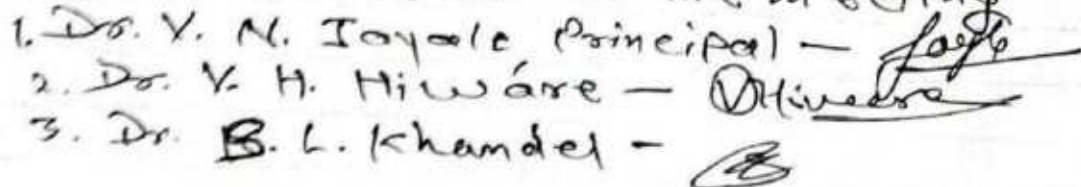 meeting
1. Dr. V. N. Ingole Principal -
2. Dr. V. H. Hiwáre - VHiware
3. Dr. B. L. Khandel -